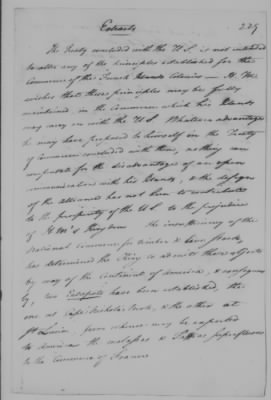 Extracts
229
The Treaty concluded with the U S. is not intended
to alter any of the principles established for the
Commerce of the French Islands Colonies — H. M.
wishes that these principles may be fully
maintained in the Commerce which his Islands
may carry on with the U S. Whatever advantages
he may have proposed to himself in the Treaty
of Commerce concluded with them, nothing can
compensate for the disadvantages of an open
communication with his Islands, & the design
of the alliance has not been to contribute
to the prosperity of the U S. to the prejudice
of H M's Kingdom. The insufficiency of the
National Commerce for timber & live stock,
has determined the King to admit these objects
by way of the Continent of America, &
by, two Entrepots have been established, the
one at Cape Nicholas Mole, & the other at
St Lucia from whence may be exported
to America the molasses & Taffias superfluous
to the Commerce of France